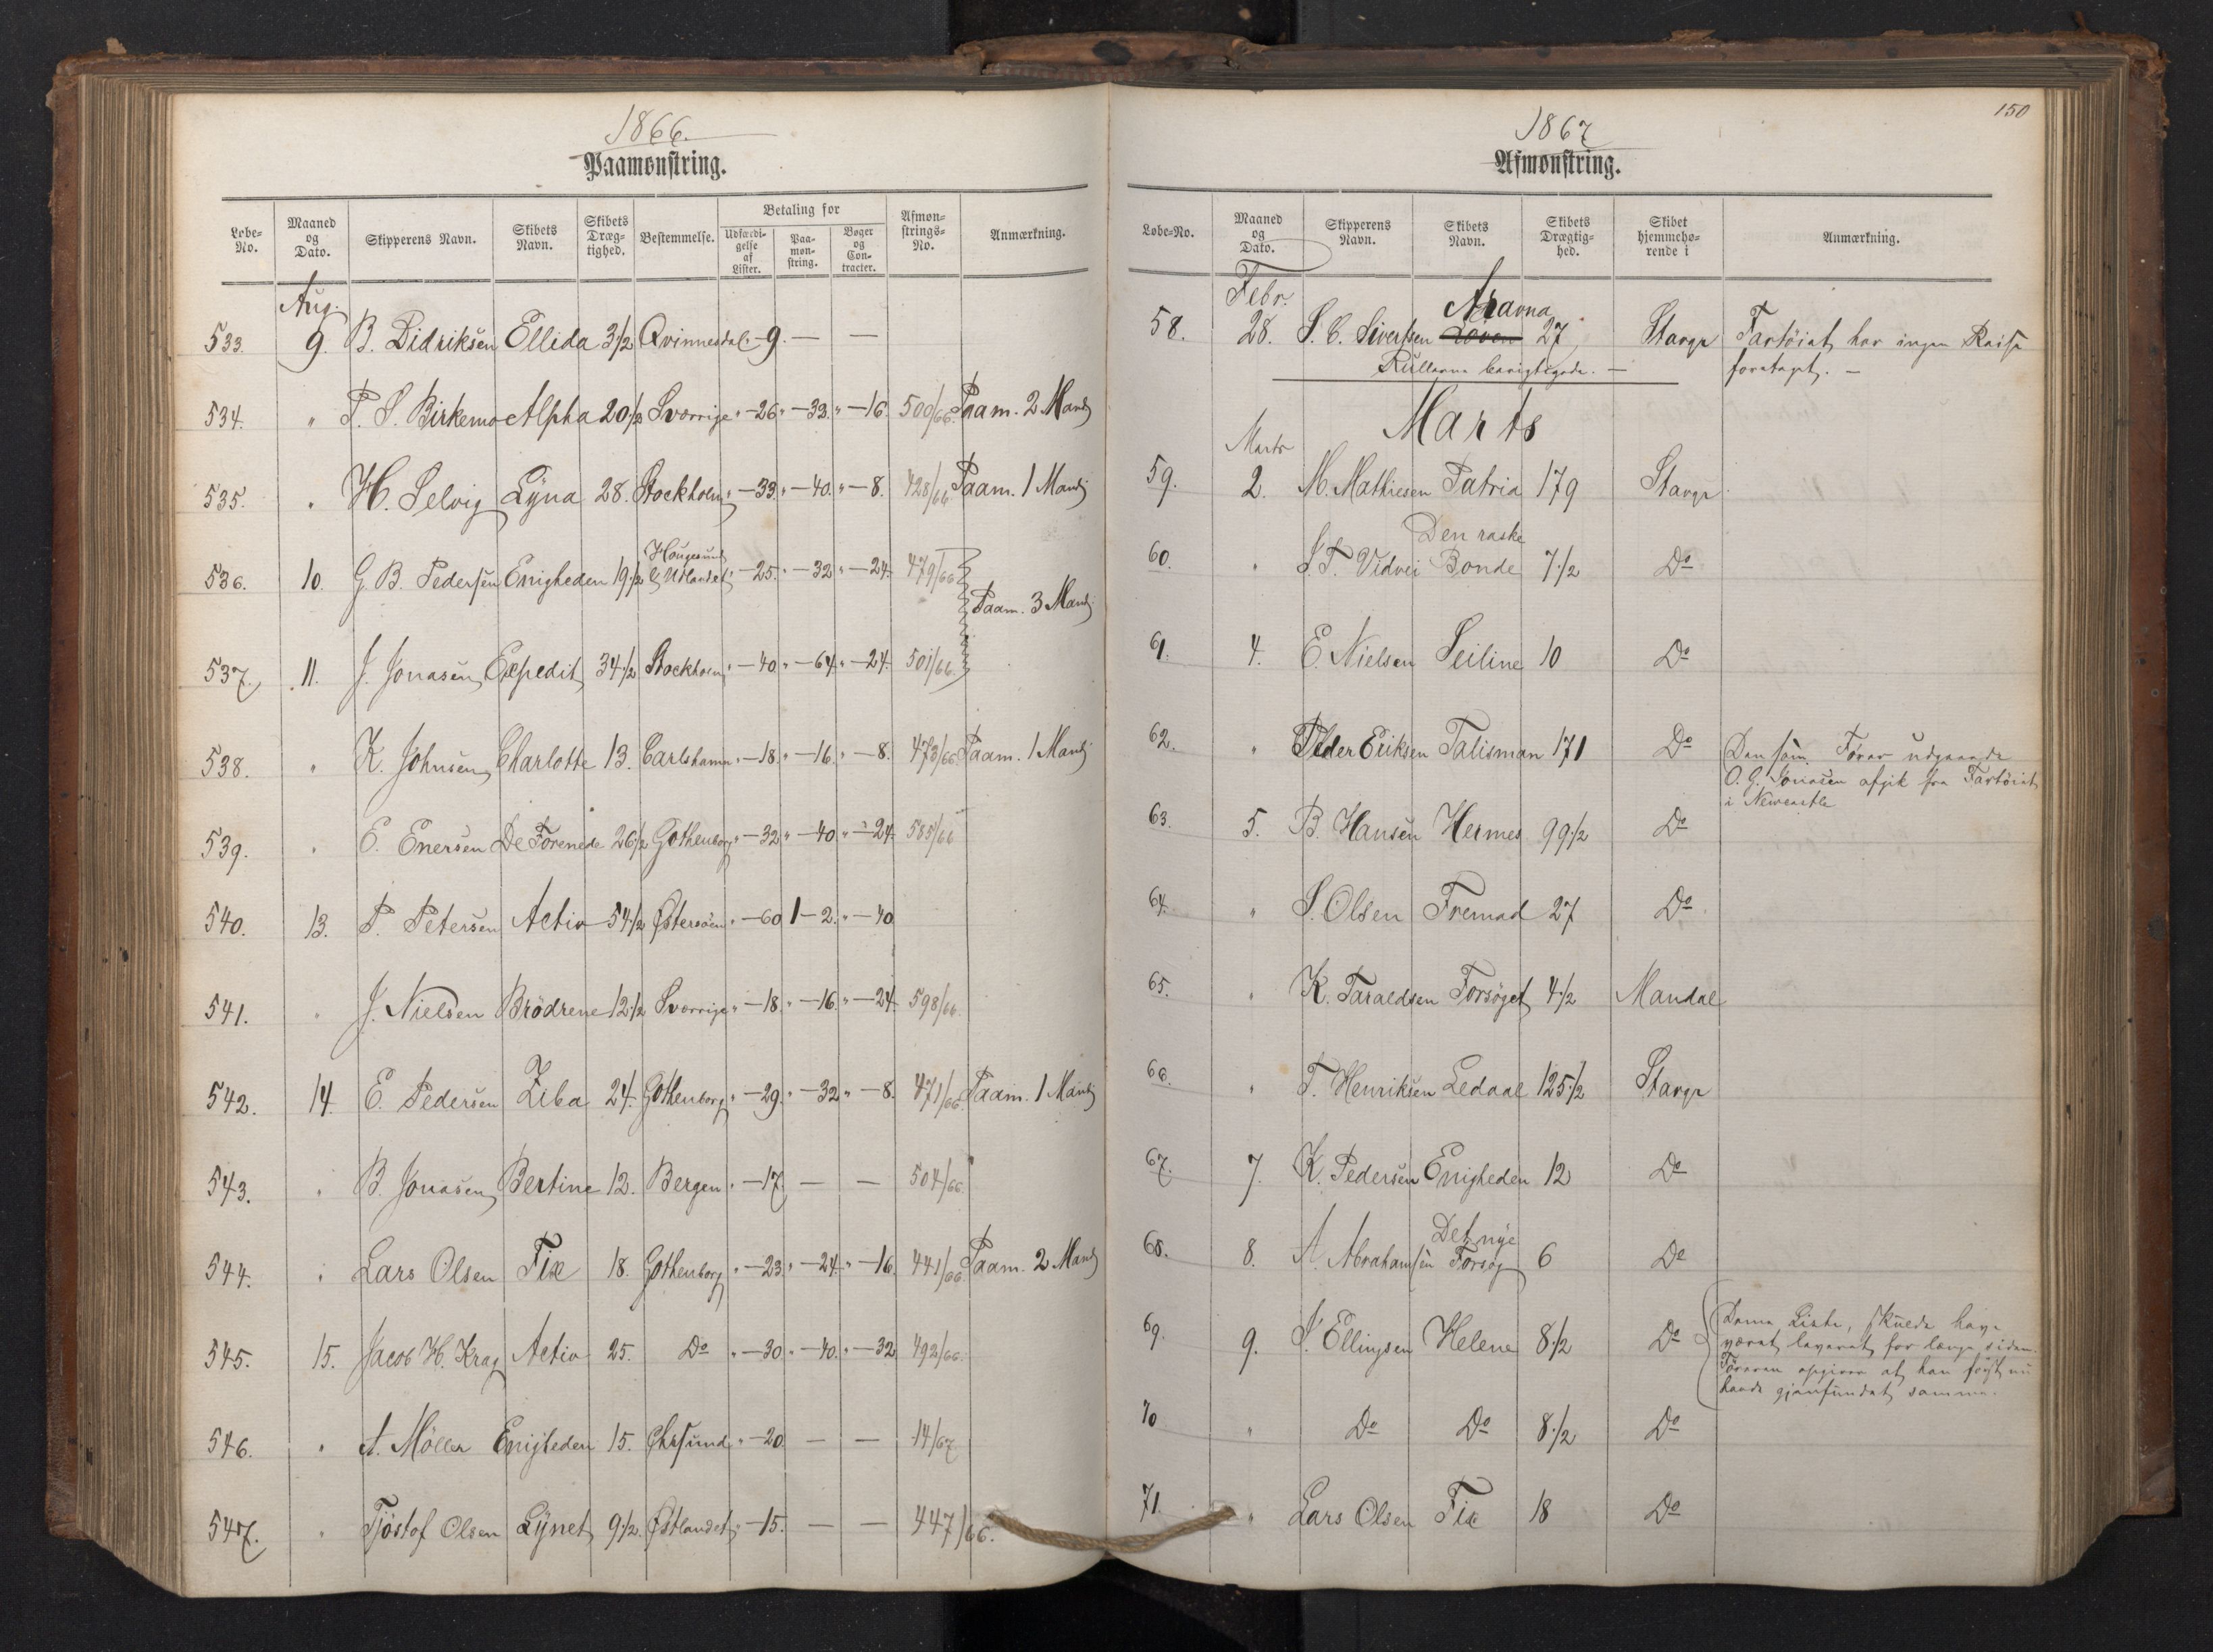 1866.
Paamønstring.
Løbe-No. Maaned og Dato. Skipperens Navn. Skibets Navn. Skibets Dræg-tighed. Bestemmelse. Betaling for Udfærdi-gelse af Lister. Paa-møn-string. Bøger og Con-tracter. Afmøn-strings-No. Anmærkning.
Aug.
533. 9. B. Didriksen Ellida 3 1/2 Qvinnesdal " - 9. — —
534. " P. S. Birkemo Alpha 20 1/2 Sverrige " - 26 " - 32. " - 16. 500/66. Paam. 2 Mand
535. " H. Selvig Lyna 28. Stockholm " - 33. " - 40. " - 8. 428/66 Paam. 1 Mand
536. 10. G. B. Pedersen Enigheden 19 1/2 Hougesund & Udlandet " - 25. " - 32 " - 24. 479/66
Paam. 3 Mand
537. 11. J. Jonasen Expedit 34 1/2 Stockholm " - 40. " - 64. " - 24. 501/66.
538. " K. Johnsen Charlotte 13. Carlshamn " - 18. " - 16. " - 8. 473/66. Paam. 1 Mand
539. " E. Enersen De Forenede 26 1/2 Gothenborg " - 32. " - 40 " - 24. 585/66
540. 13. P. Petersen Activ 54 1/2 Østersøen " - 60 1 - 2. " - 40
541. " J. Nielsen Brödrene 12 1/2 Sverrige " - 18. " - 16. " - 24. 598/66.
542. 14 E. Pedersen Ziba 24. Gothenborg " - 29. " - 32 " - 8. 471/66. Paam. 1 Mand
543. " B. Jonasen Bertine 12. Bergen " - 17 — — 504/66.
544. " Lars Olsen Fix 18. Gothenborg " - 23. " - 24. " - 16. 441/66. Paam. 2 Mand
545. 15. Jacob H. Krag Activ 25. Do " - 30. " - 40. " - 32 492/66.
546. " A. Möller Enigheden 15. Chrsund " - 20. — — 14/67
547. " Tjöstof Olsen Lynet 9 1/2. Østlandet " - 15. — — 447/66.
150
1867
Afmønstring.
Løbe-No. Maaned og Dato. Skipperens Navn. Skibets Navn. Skibets Drægtig-hed. Skibet hjemmehø-rende i Anmærkning.
Febr.
58. 28. S. C. Sivertsen 27 Stavgr Fartöiet har ingen Reise
Rullerne berigtigede. — foretaget. —
Marts
Marts
59. 2. M. Mathiesen Patria 179 Stavgr
60. " S. T. Vidvei Den raske Bonde 7 1/2 Do
61. 4. E. Nielsen Seiline 10 Do
62. " Peder Eriksen Talisman 171 Do Den som Förer udgaaede
O. G. Jonasen afgik fra Fartöiet
i Newcastle
63. 5. B. Hansen Hermes 99 1/2 Do
64. " S. Olsen Fremad 27 Do
65. " K. Taraldsen Forsöget 4 1/2 Mandal
66. " T. Henriksen Ledaal 125 1/2 Stavgr
67. 7. K. Pedersen Enigheden 12 Do
68. 8. A. Abrahamsen Det nye Forsög 6 Do
69. 9. S. Ellingsen Helene 8 1/2 Do Denne Liste, skulde have
været leveret for længe siden.
Föreren opgiver at han först nu
havde gjenfundet samme.
70 " Do Do 8 1/2 Do
71. " Lars Olsen Fix 18 Do